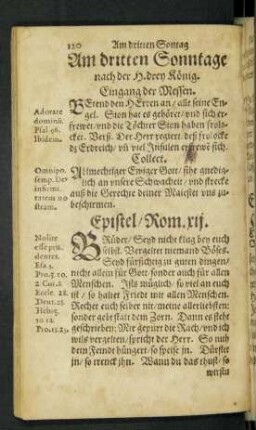 120 Am dritten Sontag
Am dritten Sonntage
nach der H. drey König.
Eingang der Messen.
Adorate
dominū.
Psal. 96.
Ibidem.
BEtend den HErren an/ alle seine En-
gel. Sion hat es gehöret/ vnd sich er-
frewet/ vnd die Töchter Sion haben frolo-
cket. Verß. Der Herr regiert. deß frolocke
dz Erdreich/ vñ vil Insulen erfrewē sich.
Collect.
Omnipo.
semp. De9
infirmi
tatem no
stram.
ALlmechtiger Ewiger Gott/ sihe gnedig-
lich an vnsere Schwacheit/ vnd strecke
auß die Gerechte deiner Maiestet vns zu-
beschirmen.
Epistel/ Rom. xij.
Nolite
esse pru
dentes.
Esa. 5.
Pro. 3. 20.
2. Cor. 8.
Eccle. 28.
Deut. 32.
Hebre.
10. 12.
BRüder/ Seyd nicht klug bey euch
selbst. Vergelter niemand Böses.
Seyd fürsichtig in guten dingen/
nicht allein für Gott sonder auch für allen
Menschen. Ists müglich/ so viel an euch
ist/ so haltet Friede mit allen Menschen.
Rechet euch selber nit/ meine allerliebsten:
sonder gebt statt dem Zorn. Dann es steht
geschrieben: Mir gepürt die Rach/ vnd ich
wils vergelten/ spricht der Herr. So nuh
dein Feindt hüngert/ so speise jn. Dürstet
jn/ so trenck jhn. Wann du das thust/ so
wirstu